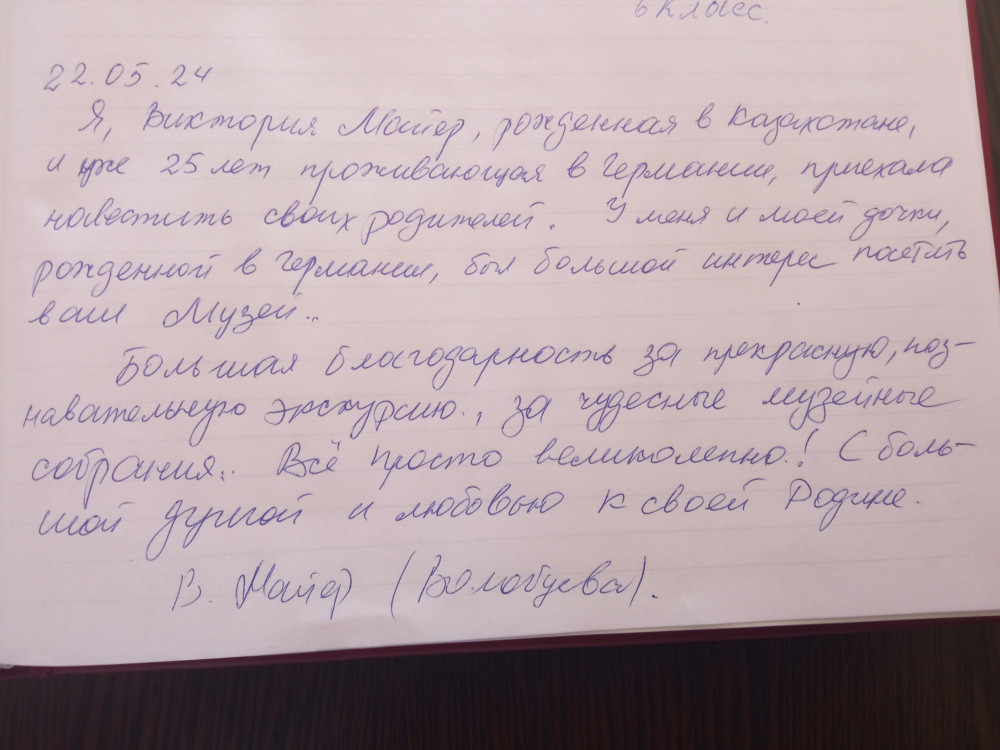 6 класс.
22.05.24
Я, Виктория Майер, рожденная в Казахстане,
и уже 25 лет проживающая в Германии, приехала
навестить своих родителей. У меня и моей дочки,
рожденной в Германии, был большой интерес посетить
ваш Музей..
Большая благодарность за прекрасную, поз-
навательную экскурсию., за чудесные музейные
собрания.. Всё просто великолепно! С боль-
шой душой и любовью к своей Родине.
В. Майер (Волобуева).